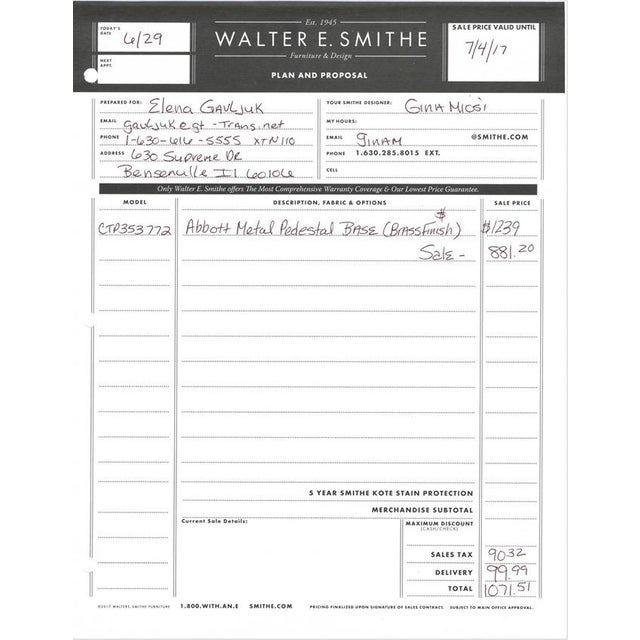 TODAY'S DATE 6/29
NEXT APPT.
Est. 1945
WALTER E. SMITHE
Furniture & Design
PLAN AND PROPOSAL
SALE PRICE VALID UNTIL
7/4/17
PREPARED FOR: Elena Gavljuk
EMAIL gavljuk@gt-trans.net
PHONE 1-630-616-5555 XTN 110
ADDRESS 630 Supreme DR
Bensenville Il 60106
YOUR SMITHE DESIGNER: GINA MIOSI
MY HOURS:
EMAIL ginam @SMITHE.COM
PHONE 1.630.285.8015 EXT.
CELL
Only Walter E. Smithe offers The Most Comprehensive Warranty Coverage & Our Lowest Price Guarantee.
MODEL DESCRIPTION, FABRIC & OPTIONS SALE PRICE
$
CTP353772 Abbott Metal Pedestal BASE (Brass Finish) $1239
Sale - 881.20
5 YEAR SMITHE KOTE STAIN PROTECTION
MERCHANDISE SUBTOTAL
Current Sale Details:
MAXIMUM DISCOUNT
(CASH/CHECK)
SALES TAX 90.32
DELIVERY 99.99
TOTAL 1071.51
©2017 WALTER E. SMITHE FURNITURE 1.800.WITH.AN.E SMITHE.COM PRICING FINALIZED UPON SIGNATURE OF SALES CONTRACT. SUBJECT TO MAIN OFFICE APPROVAL.